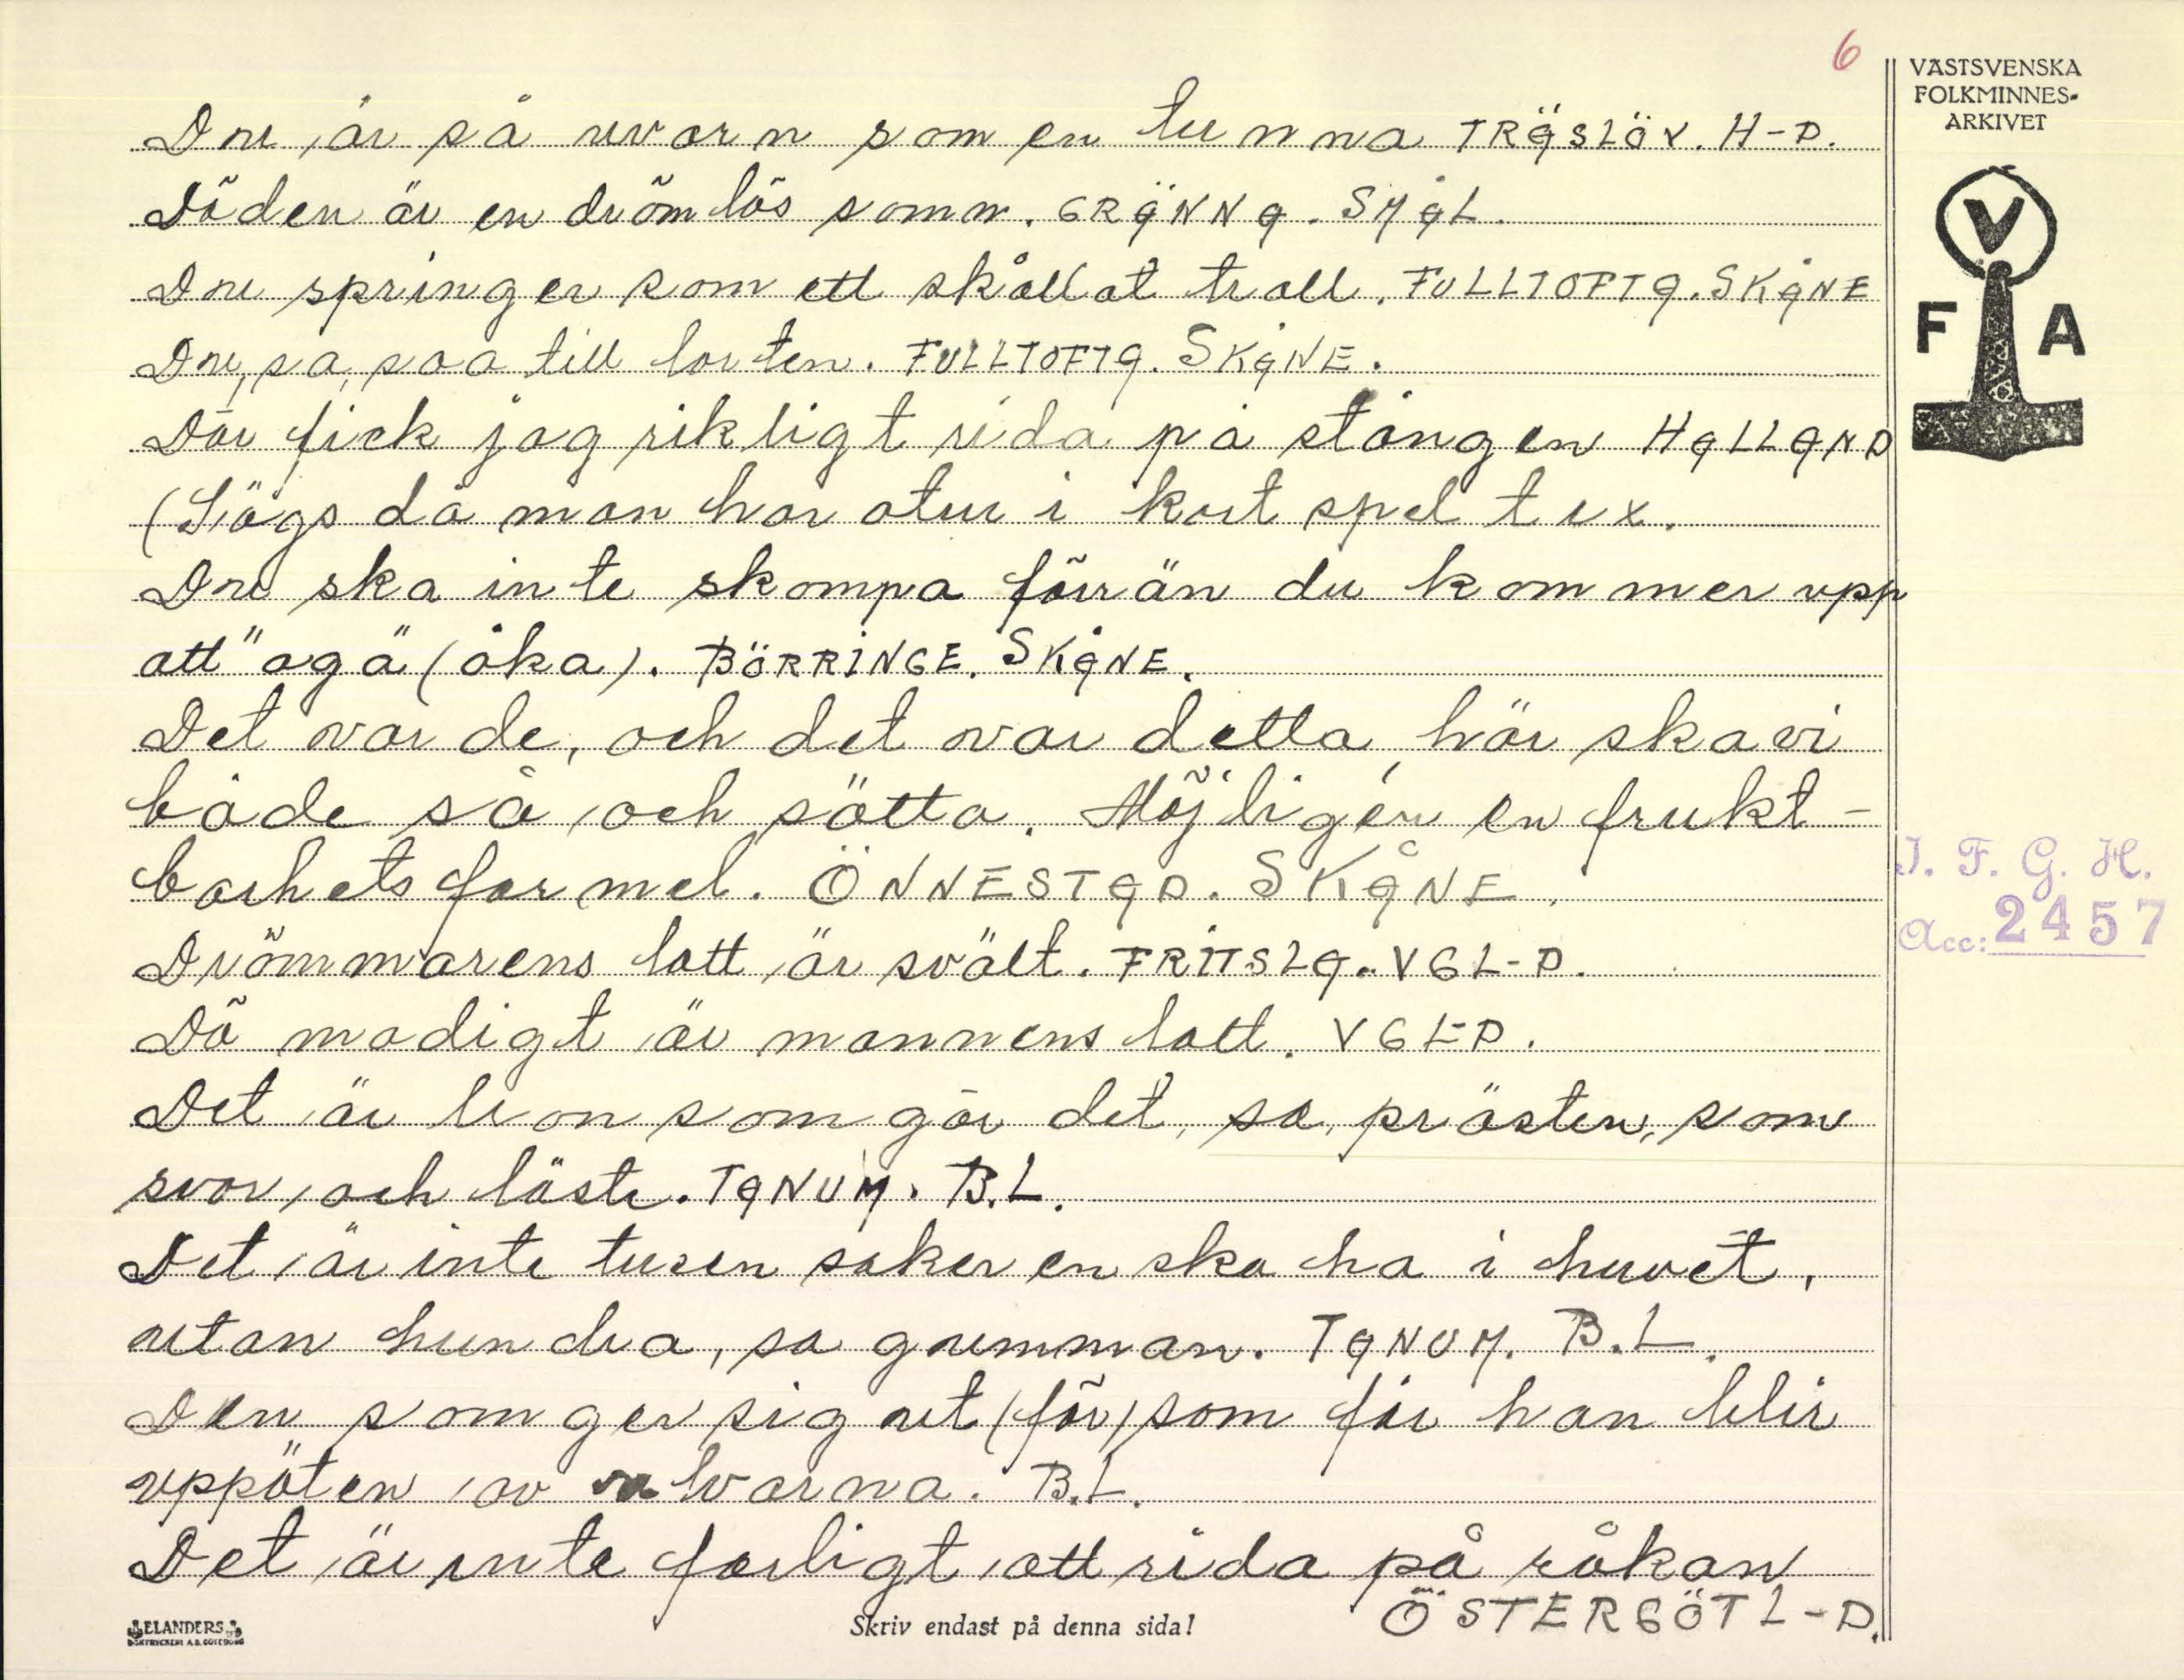 6
VÄSTSVENSKA
FOLKMINNES-
ARKIVET
V
F A
Du är så uvarn som en tunna TRÄSLÖV. H-D.
Döden är en drömlös sömn. GRÄNNA. SMÅL.
Du springer som ett skållat troll. FULLTOFTA. SKÅNE
Du, sa, soa till lorten. FULLTOFTA. SKÅNE.
Där fick jag rikligt rida på stången HALLAND
(Sägs då man har otur i kortspel t ex.
Du ska inte skompa förrän du kommer upp
att "aga" (åka). BÖRRINGE. SKÅNE.
Det var de, och det var detta, här ska vi
både så och sätta. Möjligen en frukt-
barhetsformel. ÖNNESTAD. SKÅNE.
Drömmarens lott är svält. FRITSLA. VGL-D.
Dö modigt är mannens lott. VGL-D.
Det är tron som gör det, sa, prästen, som
svor, och läste. TANUM. B.L.
Det är inte tusen saker en ska ha i huvet,
utan hundra, sa gumman. TANUM. B.L.
Den som ger sig ut (för) som får han blir
uppäten av ulvarna. B.L.
Det är inte farligt att rida på råkan
ÖSTERGÖTL-D.
I. F. G. H.
Acc: 2457
ELANDERS
BOKTRYCKERI A.B. GÖTEBORG
Skriv endast på denna sida!